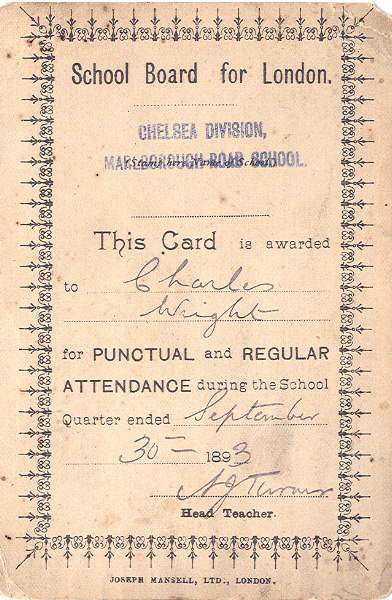 School Board for London.
CHELSEA DIVISION,
MARLBOROUGH ROAD SCHOOL.
This Card is awarded
to Charles
Wright
for PUNCTUAL and REGULAR
ATTENDANCE during the School
Quarter ended September
30 – 1893
Turner
Head Teacher.
JOSEPH MANSELL, LTD., LONDON.